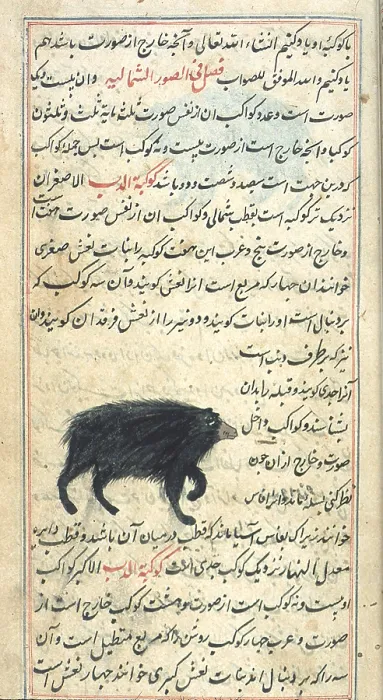 با کوکبهٔ او یاد کنیم انشاء الله تعالی و آنچه خارج از صورت باشد هم
یاد کنیم و الله الموفق للصواب فصل فی الصور الشمالیه و آن بیست و یک
صورت است و عدد کواکب آن از نفس صورت ثلث مایة ثلث و ثلثون
کوکبا و آنچه خارج است از صورت بیست و نه کوکب است پس جمله کواکب
که درین جهت است سیصد و شصت و دو باشد کوکبة الدب الاصغر آن
نزدیک تر کوکبه است بقطب شمالی و کواکب آن از نفس صورت هفت است
و خارج از صورت پنج و عرب این هفت کوکبه را بنات نعش صغری
خوانند از آن چهار که مربع است آنرا نعش کویند و آن سه کوکب که
بر دنبال است او را بنات کویند و دو نیر را از نعش فرقدان کویند و آن
نیر که بر طرف ذنب است
آنرا جدی کویند و قبله را بدان
بشناسند و کواکب داخل
صورت و خارج از آن چون
نظر کنی
خوانند زیرا که بفاس آسیا ماند که قطب در میان آن باشد و قطب دایره
معدل النهار نزدیک کوکب جدی است کوکبة الدب الاکبر کواکب
او بیست و نه کوکب است از صورت و هشت کوکب خارج است از
صورت و عرب چهار کوکب روشن را که مربع مستطیل است و آن
سه را که بر دنبال اند بنات نعش کبری خوانند چهار نعش است